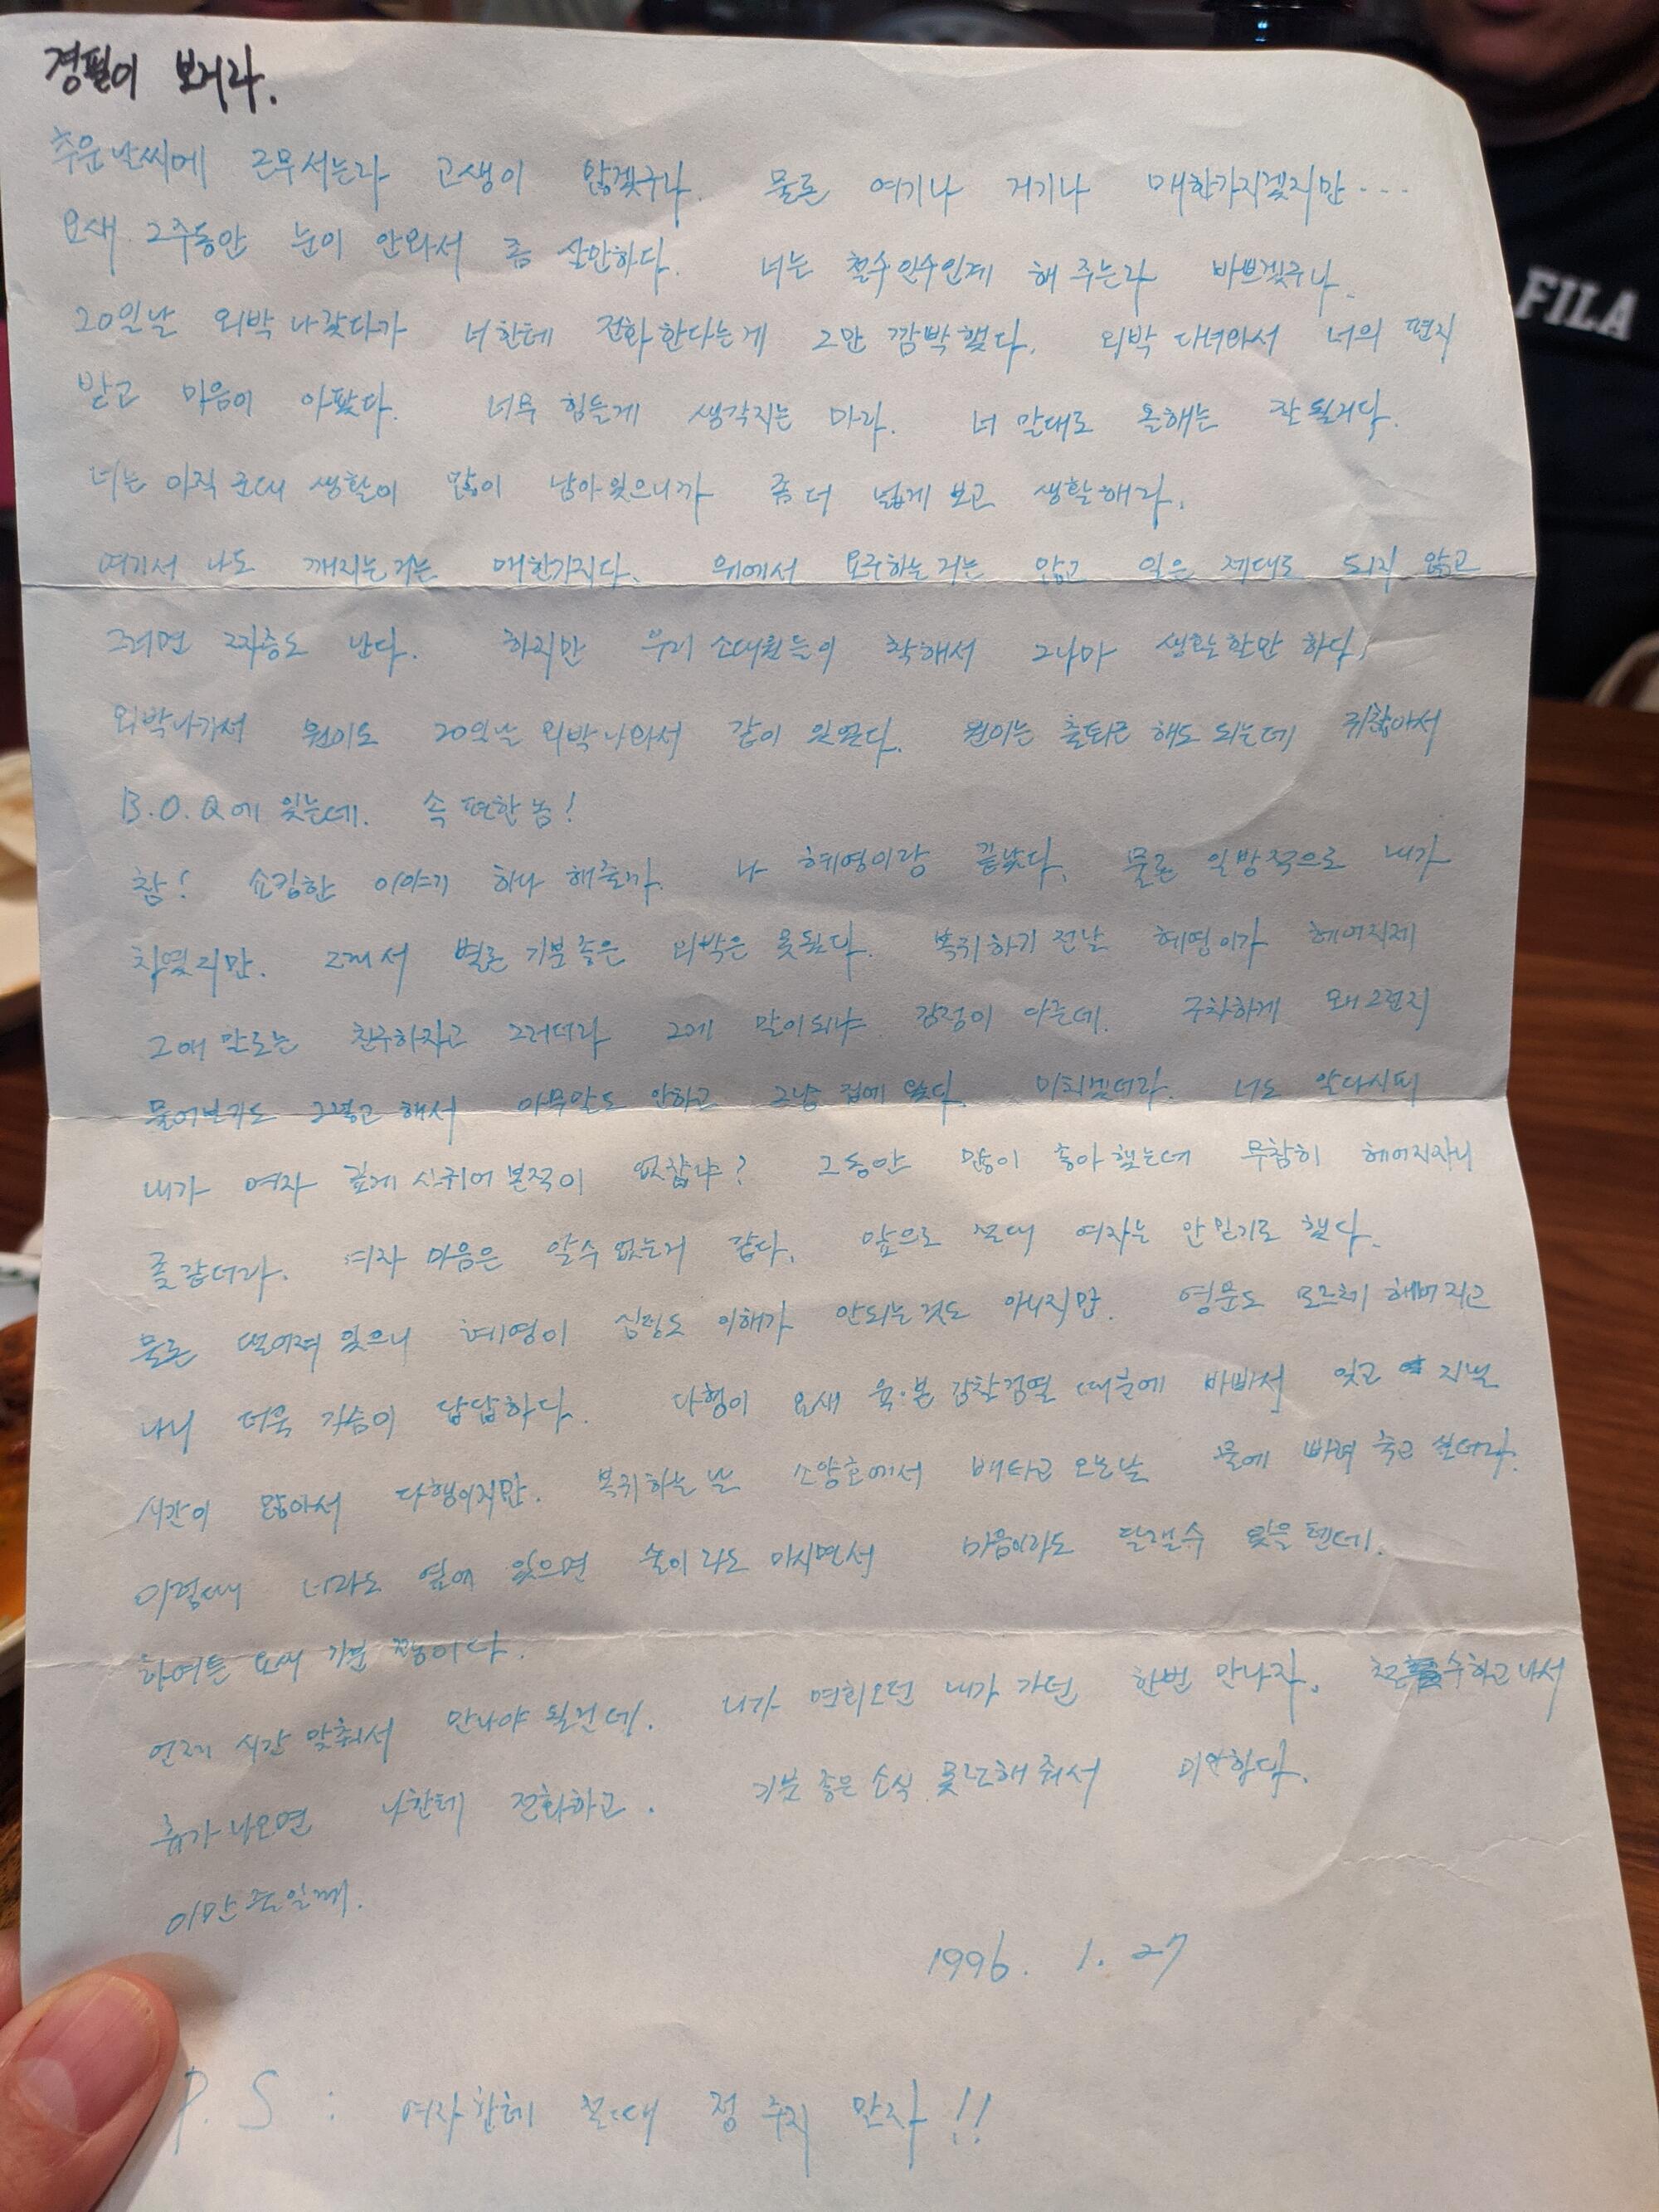 경필이 보거라.
추운날씨에 근무서는라 고생이 많겠구나. 물론 여기나 거기나 매한가지겠지만...
요새 2주동안 눈이 안와서 좀 살만하다. 너는 철수인수인계 해 주는라 바쁘겠구나.
20일날 외박 나갔다가 너한테 전화 한다는게 그만 깜박했다. 외박 다녀와서 너의 편지
받고 마음이 아팠다. 너무 힘들게 생각지는 마라. 너 말대로 올해는 잘 될거다.
너는 아직 군대 생활이 많이 남아있으니까 좀 더 넓게 보고 생활해라.
여기서 나도 깨지는거는 매한가지다. 위에서 요구하는거는 많고 일은 제대로 되지 않고
그러면 짜증도 난다. 하지만 우리 소대원들이 착해서 그나마 생활 할만 하다.
외박나가서 원이도 20일날 외박나와서 같이 있었다. 원이는 출퇴근 해도 되는데 귀찮아서
B.O.Q에 있는데. 속 편한 놈!
참! 쇼킹한 이야기 하나 해줄까. 나 혜영이랑 끝났다. 물론 일방적으로 내가
지만. 그래서 별로 기분 좋은 외박은 못됐다. 복귀하기 전날 혜영이가 헤어지제
그애 말로는 친구하자고 그러더라 그게 말이되냐 감정이 다른데. 구차하게 왜그런지
물어보기도 그렇고 해서 아무말도 안하고 그냥 집에 왔다. 미치겠더라. 너도 알다시피
내가 여자 깊게 사귀어 본적이 없잖냐? 그동안 많이 좋아했는데 무참히 헤어지자니
좆같더라. 여자 마음은 알수 없는거 같다. 앞으로 절대 여자는 안 믿기로 했다.
물론 떨어져 있으니 혜영이 심정도 이해가 안되는것도 아니지만. 영문도 모르체 헤버지고
나니 더욱 가슴이 답답하다. 다행이 요새 육·본 감찰검열 때문에 바빠서 잊고 지낼
시간이 많아서 다행이지만. 복귀하는 날 소양호에서 배타고 오는날 물에 빠져 죽고 싶더라.
이럴때 너라도 옆에 있으면 술이라도 마시면서 마음이라도 달랠수 있을텐데.
하여튼 요새 기분 꽝이다.
언제 시간 맞춰서 만나야 될건데. 니가 면회오던 내가 가던 한번 만나자. 철수하고나서
휴가 나오면 나한테 전화하고. 기분 좋은 소식 못전해 줘서 미안하다.
이만 줄일께.
1996. 1. 27
P.S : 여자한테 절대 정 주지 말자!!
FILA